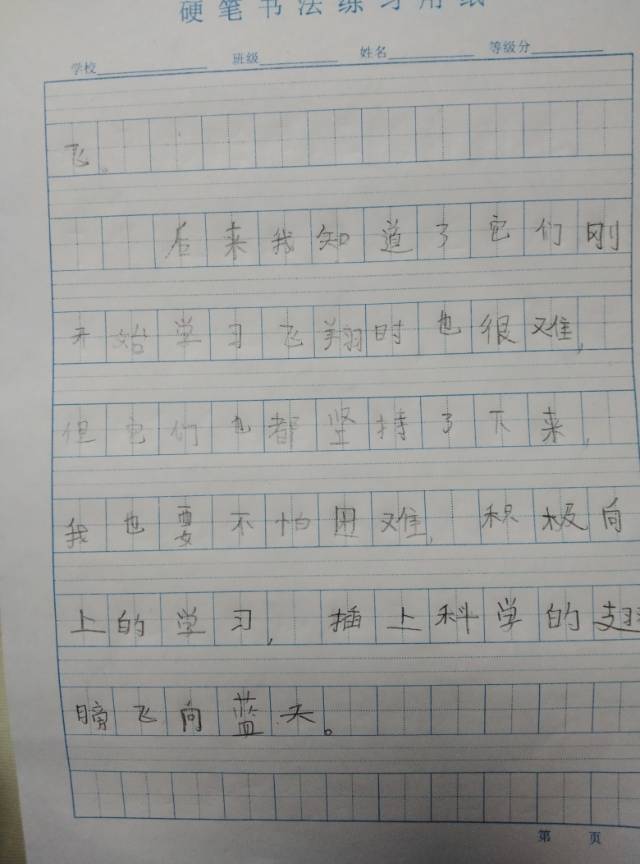 硬笔书法练习用纸
学校 班级 姓名 等级分
飞。
后来我知道了它们刚
开始学习飞翔时也很难,
但它们也都坚持了下来,
我也要不怕困难,积极向
上的学习,插上科学的翅
膀飞向蓝天。
第 页